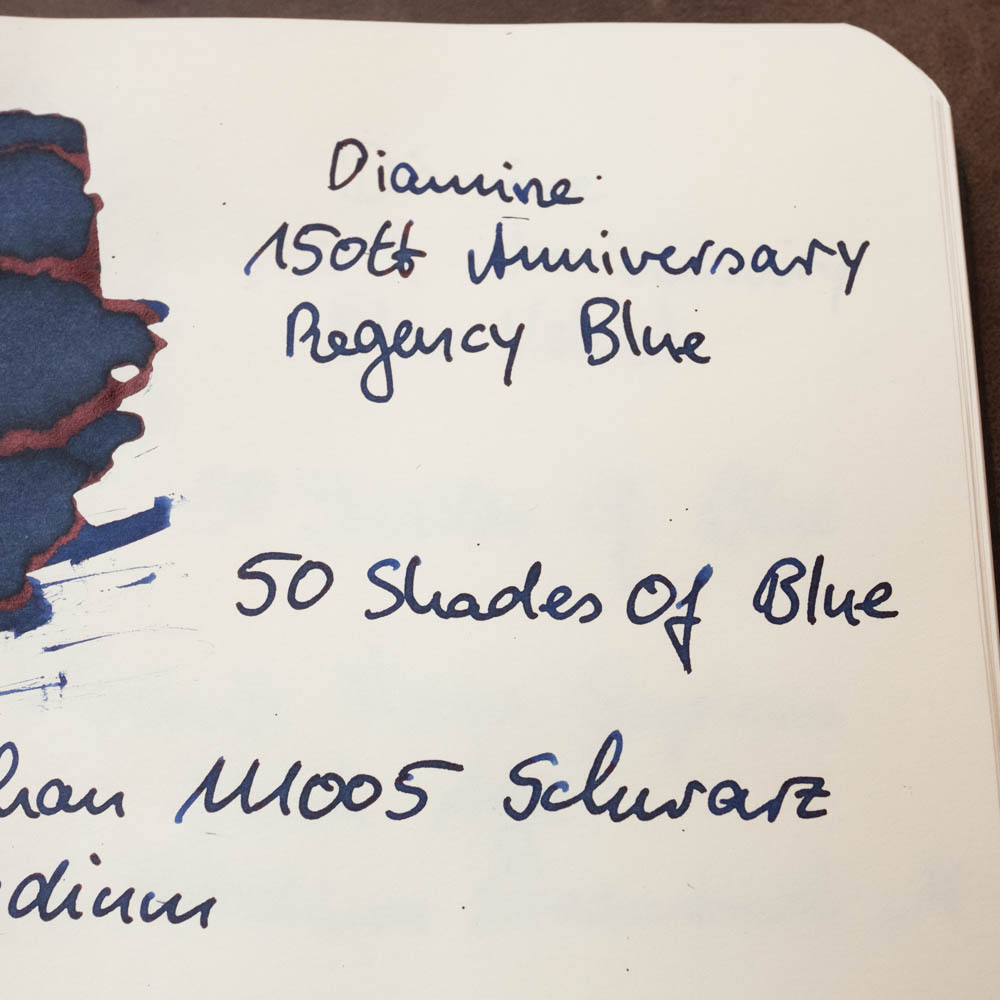 Diamine
150th Anniversary
Regency Blue
50 Shades Of Blue
M1005 Schwarz